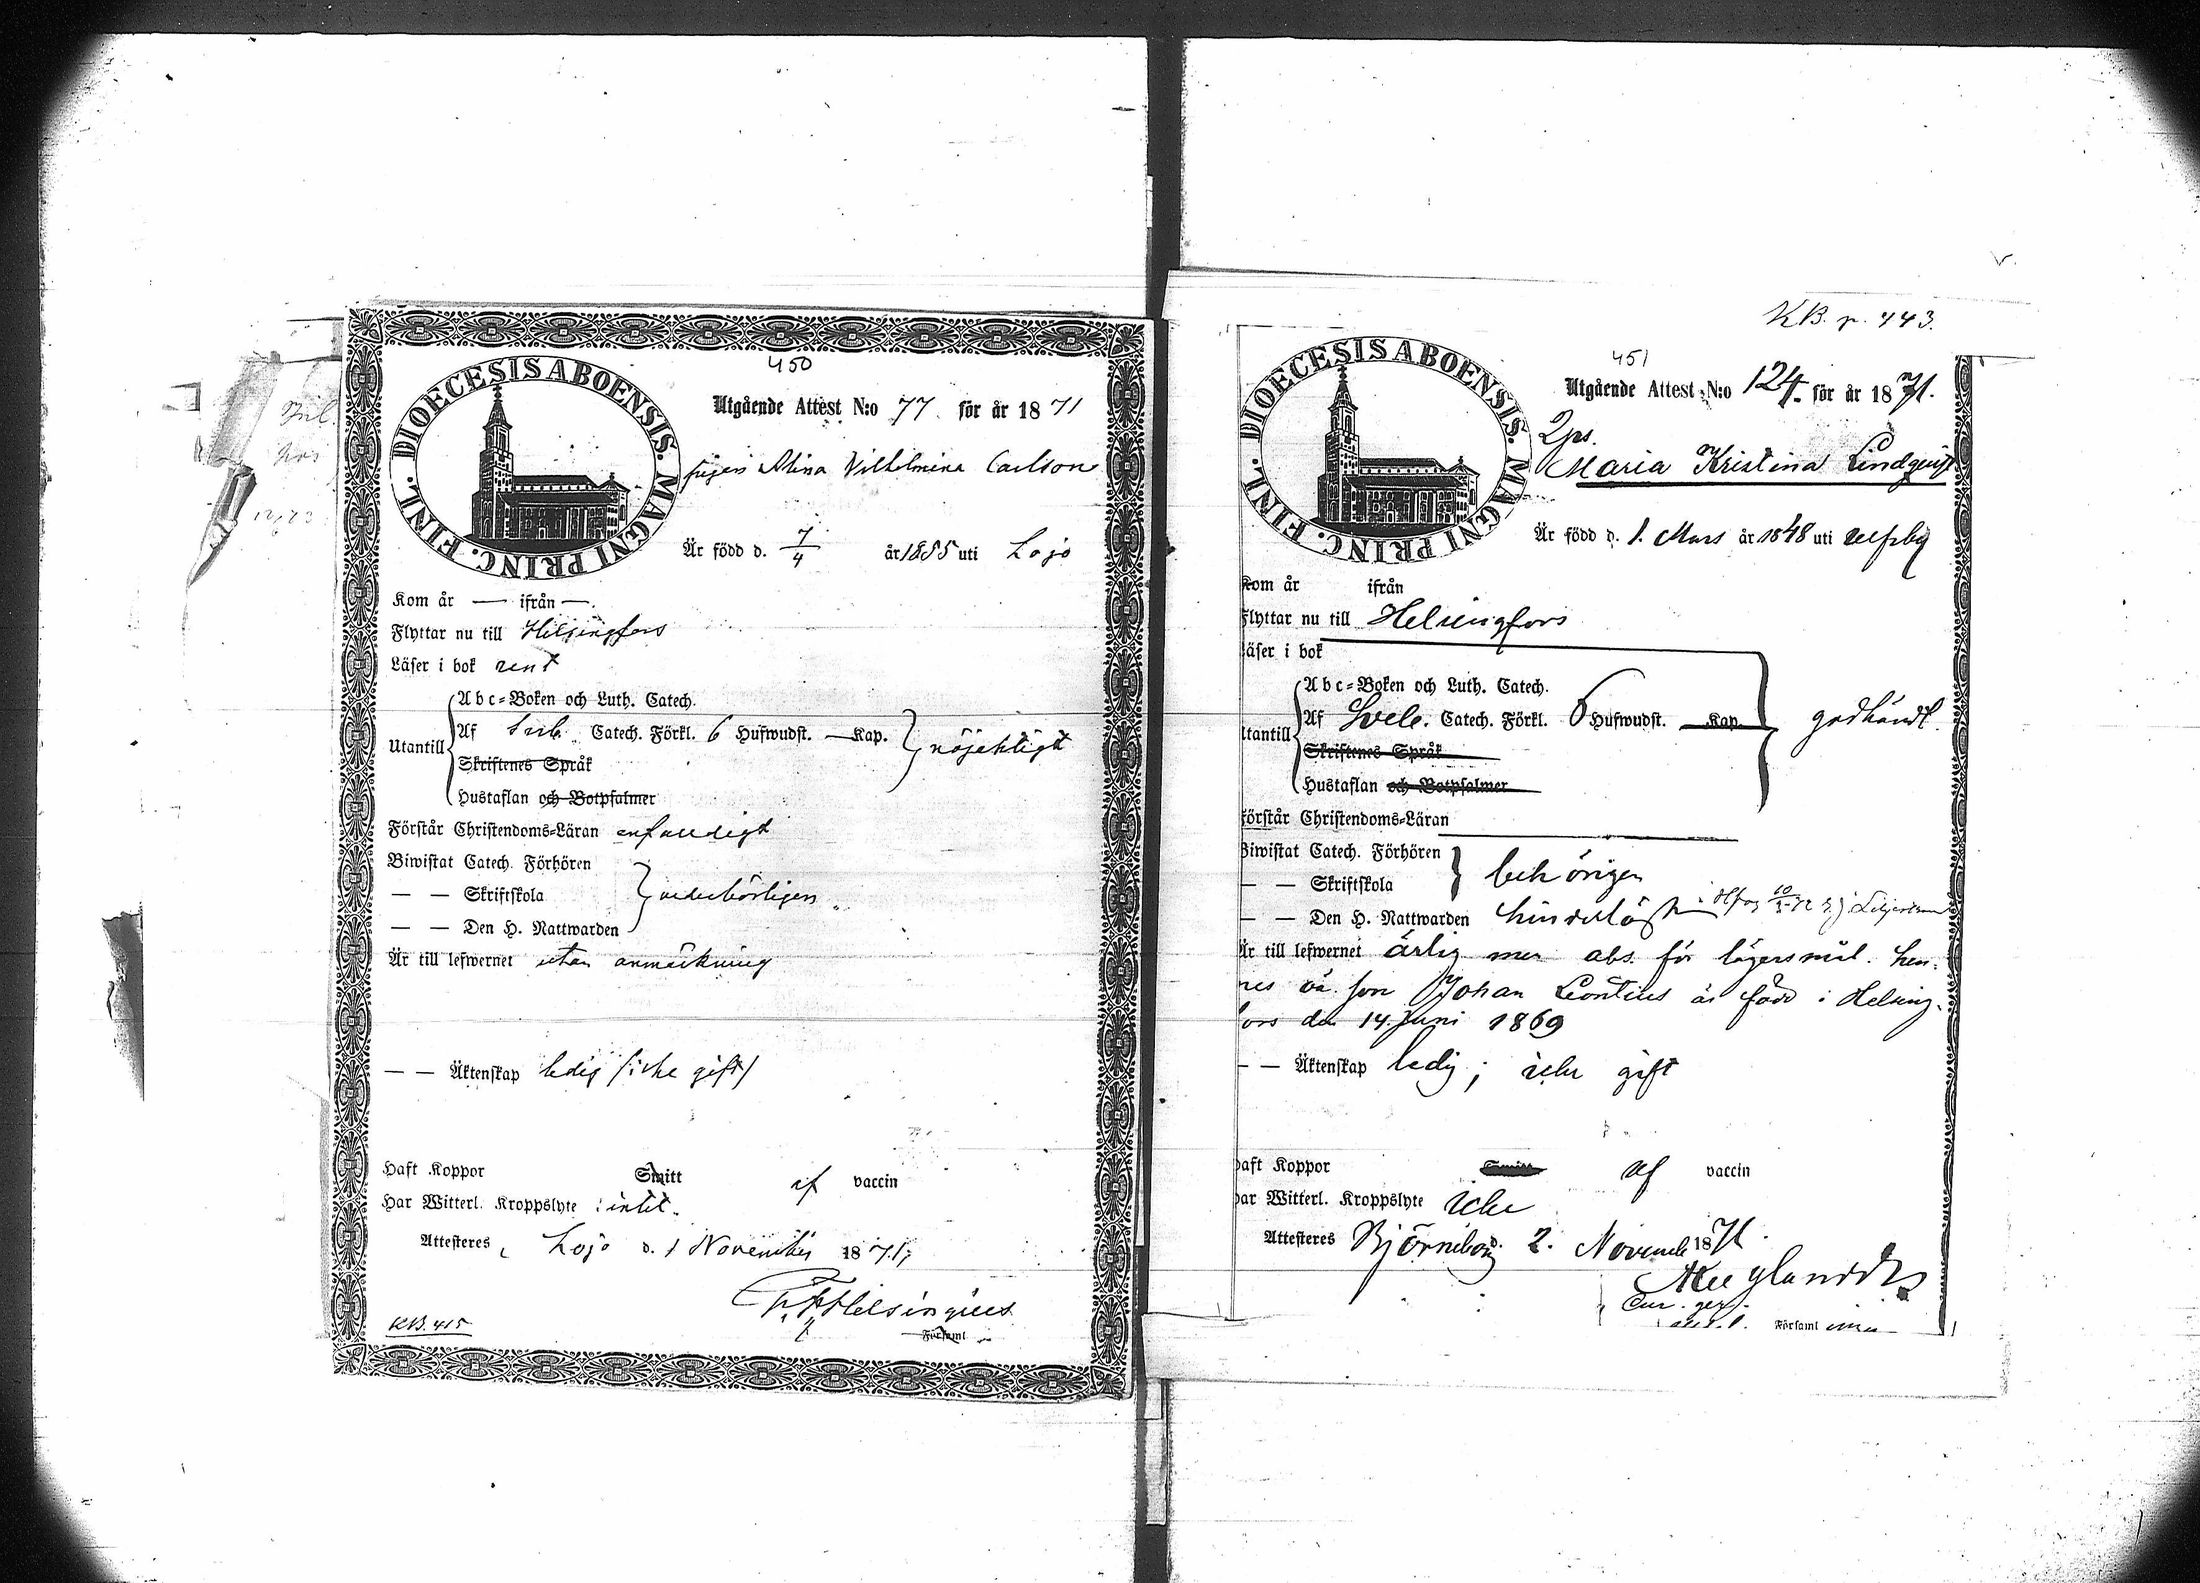 450
DIOECESIS ABOENSIS. MAGNI PRINC. FINL.
Utgående Attest N:o 77 för år 1871
pigan Alina Vilhelmina Carlson
Är född d. 7/4 år 1855 uti Lojo
Kom år — ifrån —.
Flyttar nu till Helsingfors
Läser i bok rent
Abc-Boken och Luth. Catech.
Utantill Af Sveb. Catech. Förkl. 6 Hufwudst. — Kap. nöjaktigt
Skriftenes Språk
Hustaflan och Botpsalmer
Förstår Christendoms-Läran enfaldigt
Biwistat Catech. Förhören
— — Skriftskola vederbörligen
— — Den H. Nattwarden
Är till lefwernet utan anmärkning
— — Äktenskap ledig /icke gift/
Haft Koppor Smitt af vaccin
Har Witterl. Kroppslyte : intet.
Attesteres, Lojo d. 1 November 1871,
Helsingius
Församl
KB. 415
KB. p. 443.
451
DIOECESIS ABOENSIS. MAGNI PRINC. FINL.
Utgående Attest N:o 124. för år 1871.
Maria Kristina Lindqvist
Är född d. 1. Mars år 1848 uti Ulfsby
Kom år ifrån
Flyttar nu till Helsingfors
Läser i bok
Abc-Boken och Luth. Catech.
Utantill Af Sveb. Catech. Förkl. 6 Hufwudst. — Kap. godkändt.
Skriftenes Språk
Hustaflan och Botpsalmer
Förstår Christendoms-Läran
Biwistat Catech. Förhören
— — Skriftskola behörigen
— — Den H. Nattwarden hinderlöst
Är till lefwernet ärlig men abs. för lägersmål. hen-
nes oä. son Johan Leontius är född i Helsing-
fors den 14. Juni 1869
— — Äktenskap ledig; icke gift
Haft Koppor Smitt af vaccin
Har Witterl. Kroppslyte icke
Attesteres Björneborg d. 2. Novemb 1871.
Församl